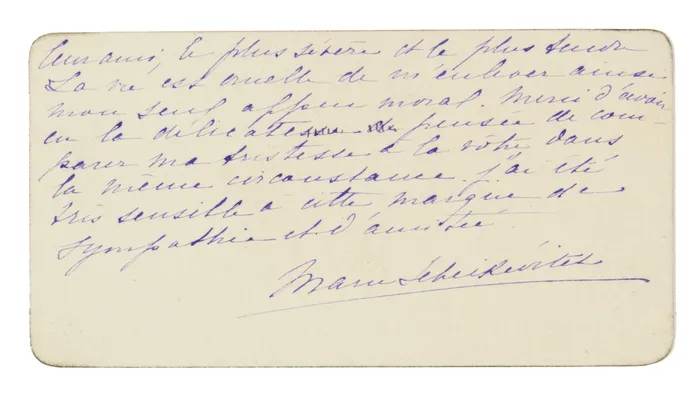 leur ami, le plus sévère et le plus tendre
La vie est cruelle de m'enlever ainsi
mon seul appui moral. Merci d'avoir
eu la délicatesse pensée de com-
parer ma tristesse à la vôtre dans
la même circonstance. J'ai été
très sensible à cette marque de
sympathie et d'amitié.
Marie Scheikévitch